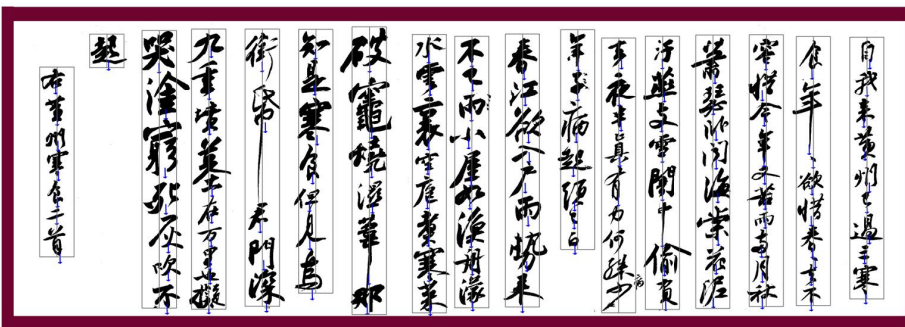 自我來黃州已過三寒
食年年欲惜春春去不
容惜今年又苦雨兩月秋
蕭瑟臥聞海棠花泥
汙燕支雪闇中偷負
去夜半真有力何殊少
年子病起須已白
春江欲入戶雨勢來
不已雨小屋如漁舟濛
水雲裏空庖煮寒菜
破竈燒濕葦那
知是寒食但見烏
銜帋君門深
九重墳墓在万里也擬
哭塗窮死灰吹不
起
右黃州寒食二首